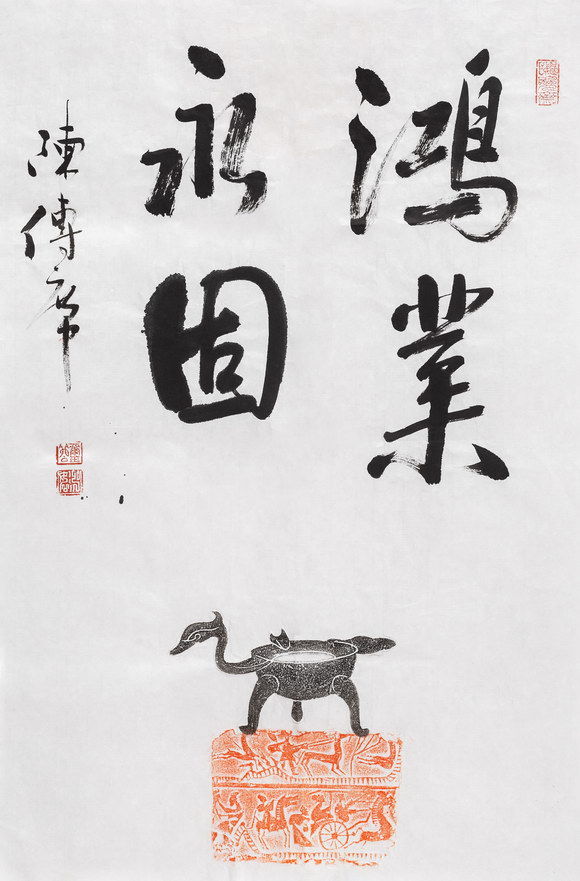 鴻業
永固
陳傳席